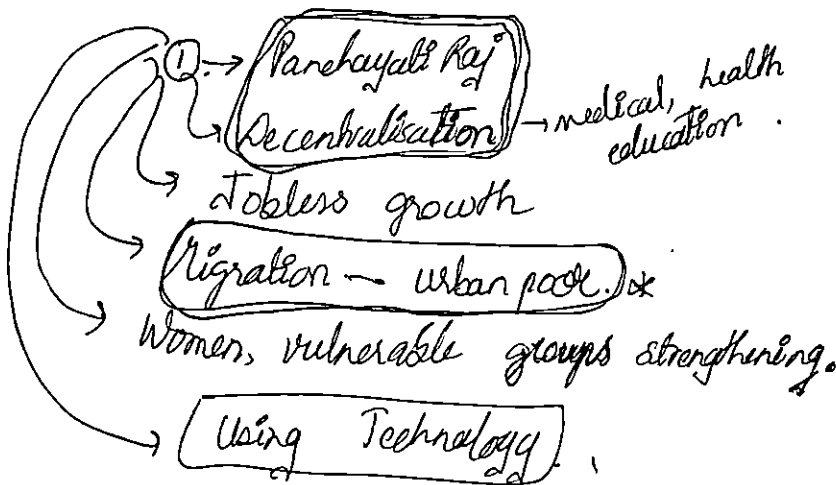 ① → Panchayati Raj
Decentralisation → medical, health
education.
Jobless growth
Migration – urban poor. *
Women, vulnerable groups strengthening.
Using Technology.